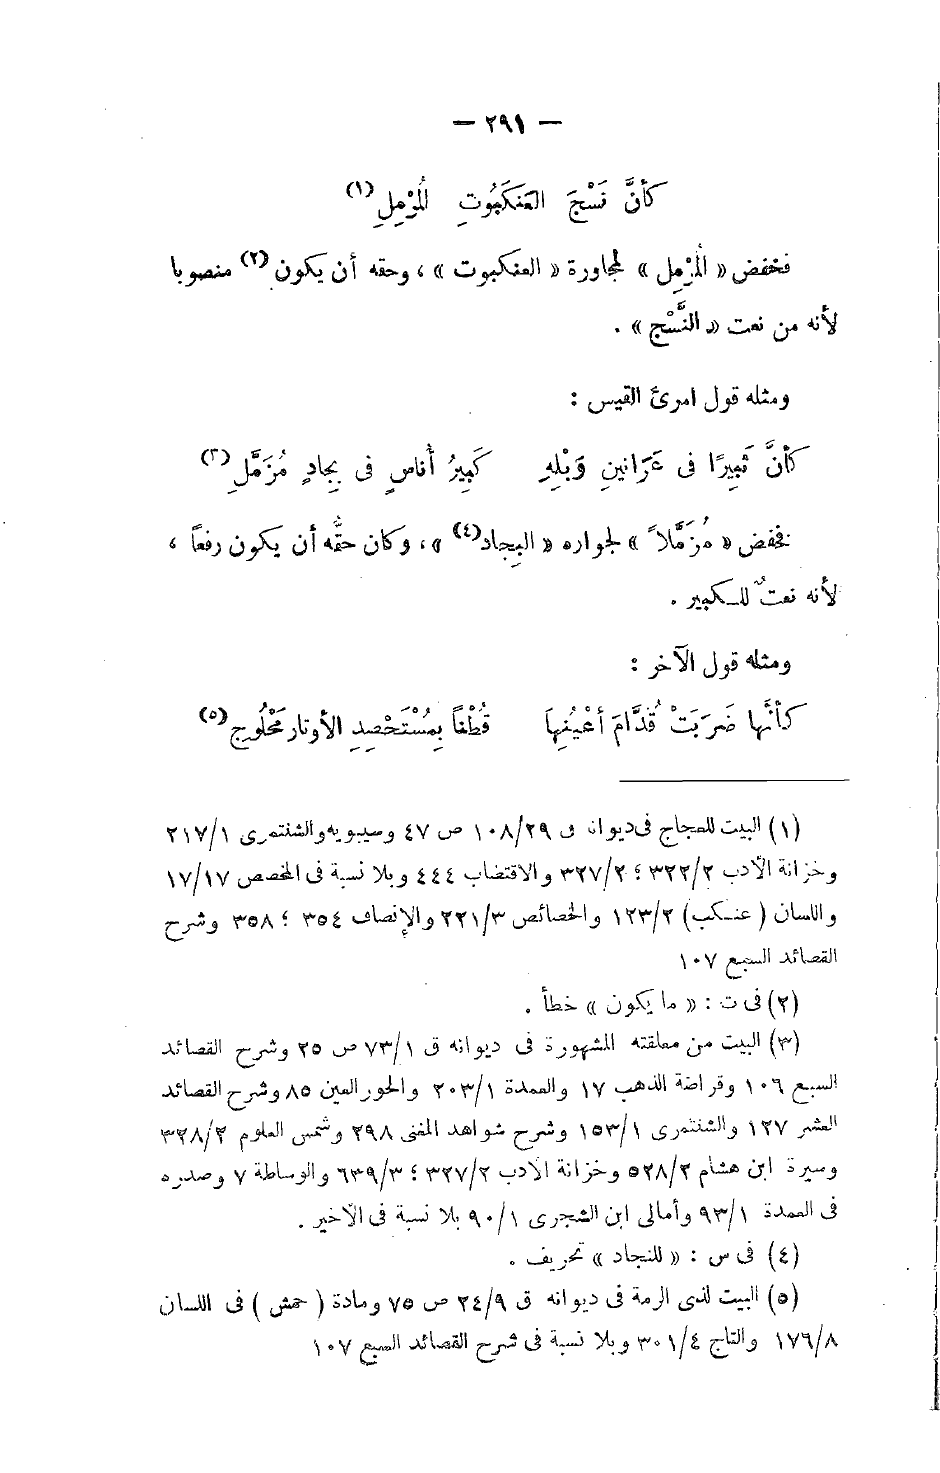 — ٢٩١ —
كأنَّ نَسْجَ العَنكَبُوتِ المُرْمِلِ (١)
فخفض « المُرْمِل » لمجاورة « العنكبوت » ، وحقه أن يكون (٢) منصوبا
لأنه من نعت « النَّسْج » .
ومثله قول امرئ القيس :
كأنَّ ثَبِيرًا فى عَرَانينِ وَبْلِهِ كَبِيرُ أُناسٍ فى بِجادٍ مُزَمَّلِ (٣)
فخفض « مُزَمَّلاً » لجواره « البِجاد (٤) » ، وكان حقُّه أن يكون رفعاً ،
لأنه نعتٌ للكبير .
ومثله قول الآخر :
كأنَّها ضَرَبَتْ قُدَّامَ أعْيُنِها قُطْناً بِمُسْتَحْصِدِ الأوتار مَحْلُوجِ (٥)
(١) البيت للعجاج فى ديوانه ق ١٠٨/٢٩ ص ٤٧ وسيبويه والشنتمرى ٢١٧/١
وخزانة الأدب ٣٢٢/٢ ؛ ٣٢٧/٢ والاقتضاب ٤٤٤ وبلا نسبة فى المخصص ١٧/١٧
واللسان ( عنكب ) ١٢٣/٢ والخصائص ٢٢١/٣ والإنصاف ٣٥٤ ؛ ٣٥٨ وشرح
القصائد السبع ١٠٧
(٢) فى ت : « ما يكون » خطأ .
(٣) البيت من معلقته المشهورة فى ديوانه ق ٧٣/١ ص ٢٥ وشرح القصائد
السبع ١٠٦ وقراضة الذهب ١٧ والعمدة ٢٠٣/١ والحور العين ٨٥ وشرح القصائد
العشر ١٢٧ والشنتمرى ١٥٣/١ وشرح شواهد المغنى ٢٩٨ وشمس العلوم ٣٢٨/٢
وسيرة ابن هشام ٥٢٨/٢ وخزانة الأدب ٣٢٧/٢ ؛ ٦٣٩/٣ والوساطة ٧ وصدره
فى العمدة ٩٣/١ وأمالى ابن الشجرى ٩٠/١ بلا نسبة فى الأخير .
(٤) فى س : « للنجاد » تحريف .
(٥) البيت لذى الرمة فى ديوانه ق ٢٤/٩ ص ٧٥ ومادة ( حمش ) فى اللسان
١٧٦/٨ والتاج ٣٠١/٤ وبلا نسبة فى شرح القصائد السبع ١٠٧